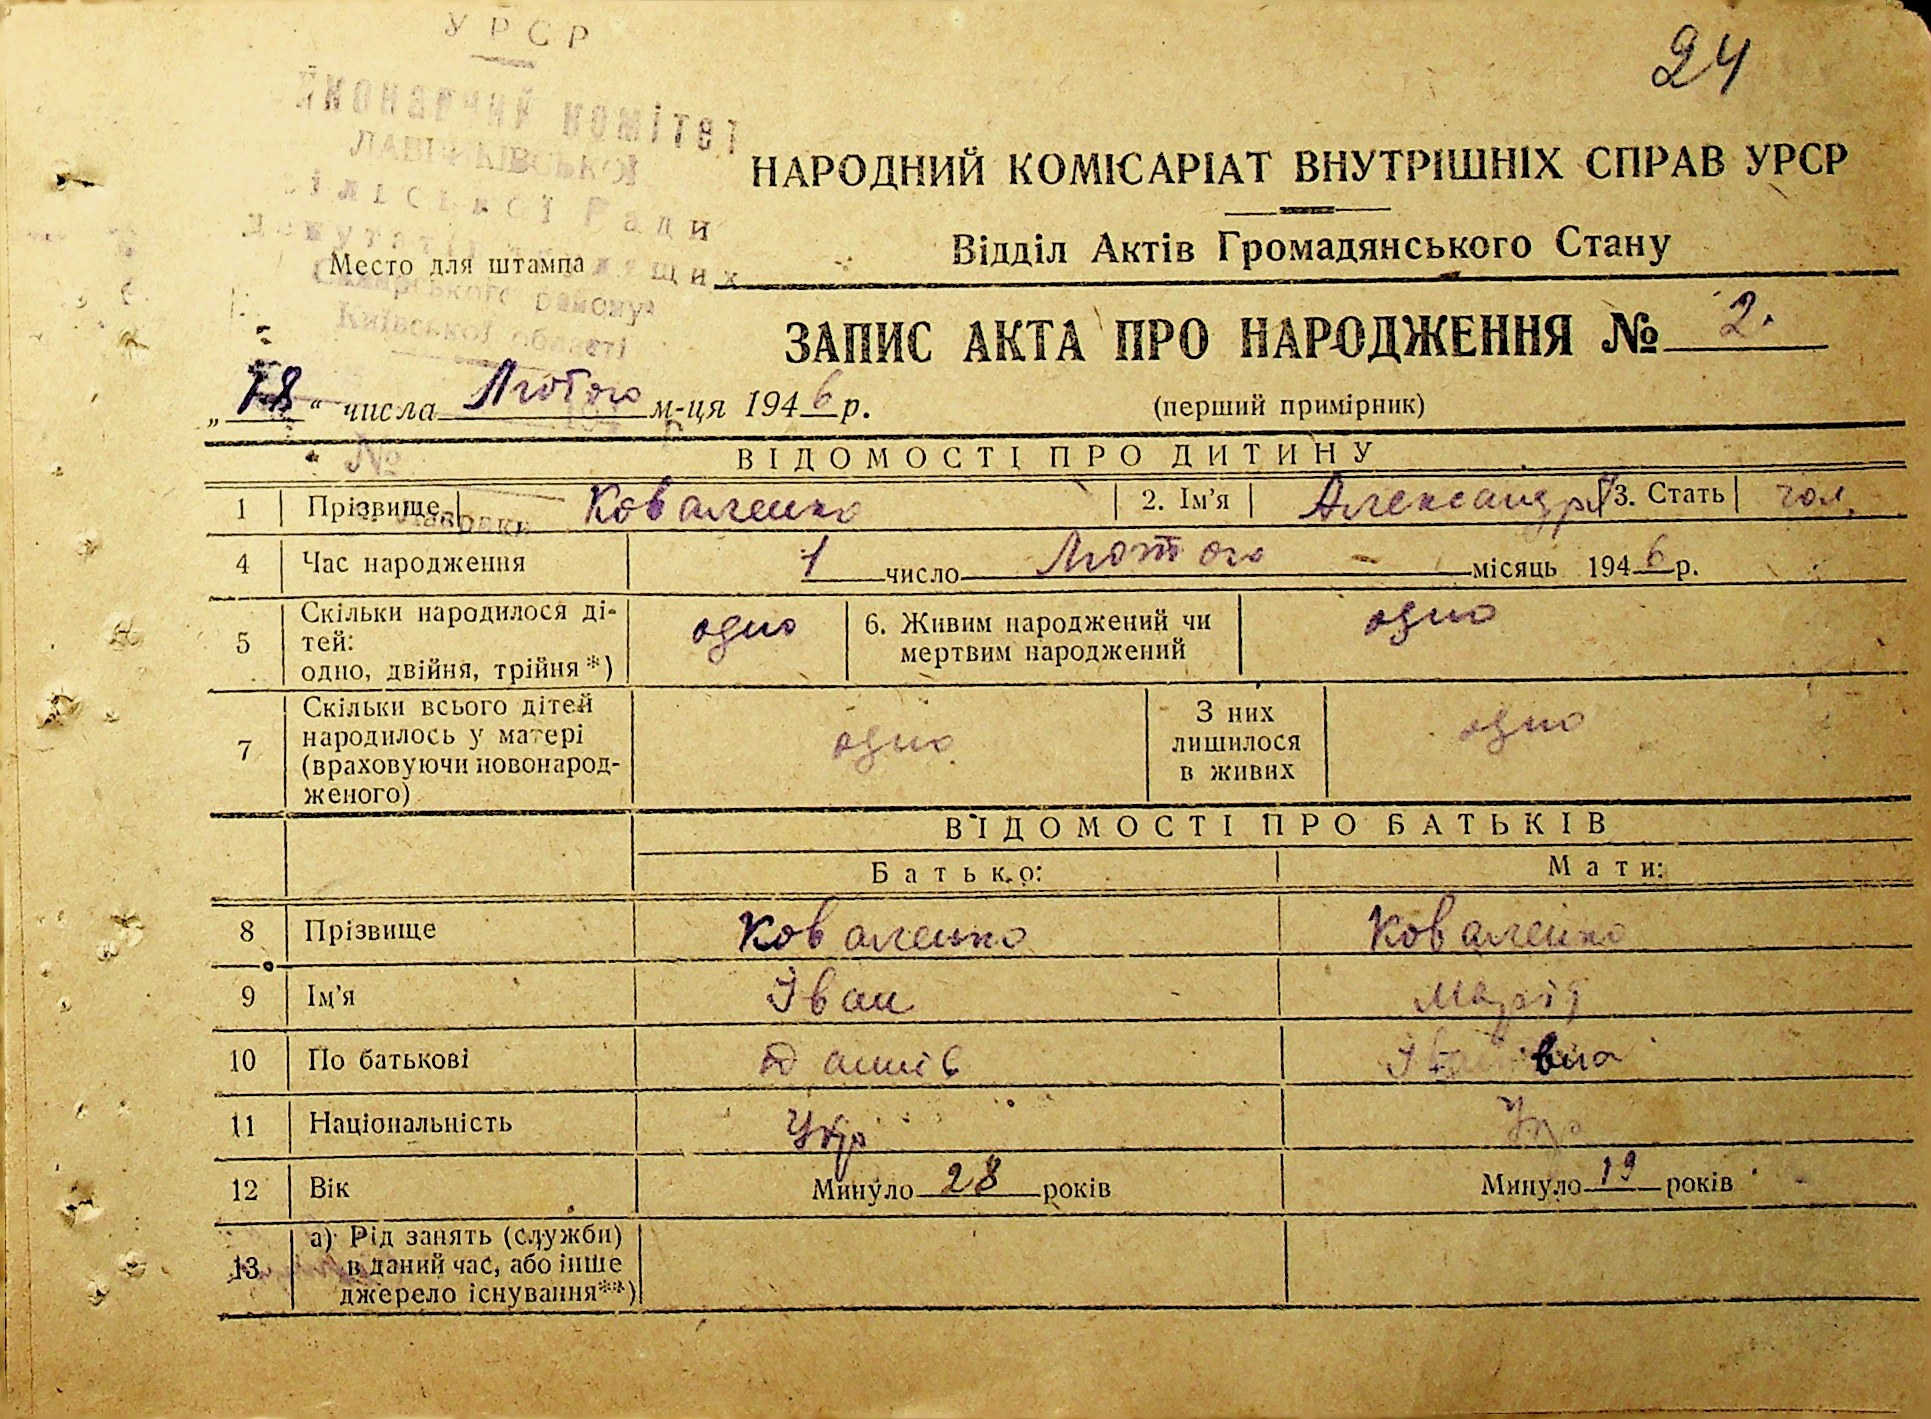 24
УРСР
комітет
Ради
Сквирського району
Київської області
НАРОДНИЙ КОМІСАРІАТ ВНУТРІШНІХ СПРАВ УРСР
Відділ Актів Громадянського Стану
Место для штампа
ЗАПИС АКТА ПРО НАРОДЖЕННЯ № 2.
(перший примірник)
„18“ числа Лютого м-ця 1946 р.
№
ВІДОМОСТІ ПРО ДИТИНУ
1 Прізвище Коваленко 2. Ім'я Александр 3. Стать чол.
4 Час народження 1 число Лютого місяць 1946 р.
5 Скільки народилося ді-
тей:
одно, двійня, трійня *) одно 6. Живим народжений чи
мертвим народжений одно
7 Скільки всього дітей
народилось у матері
(враховуючи новонарод-
женого) одно З них
лишилося
в живих одно
ВІДОМОСТІ ПРО БАТЬКІВ
Батько: Мати:
8 Прізвище Коваленко Коваленко
9 Ім'я Іван Марія
10 По батькові Івановна
11 Національність Укр Укр
12 Вік Минуло 28 років Минуло 19 років
13 а) Рід занять (служби)
в даний час, або інше
джерело існування**)